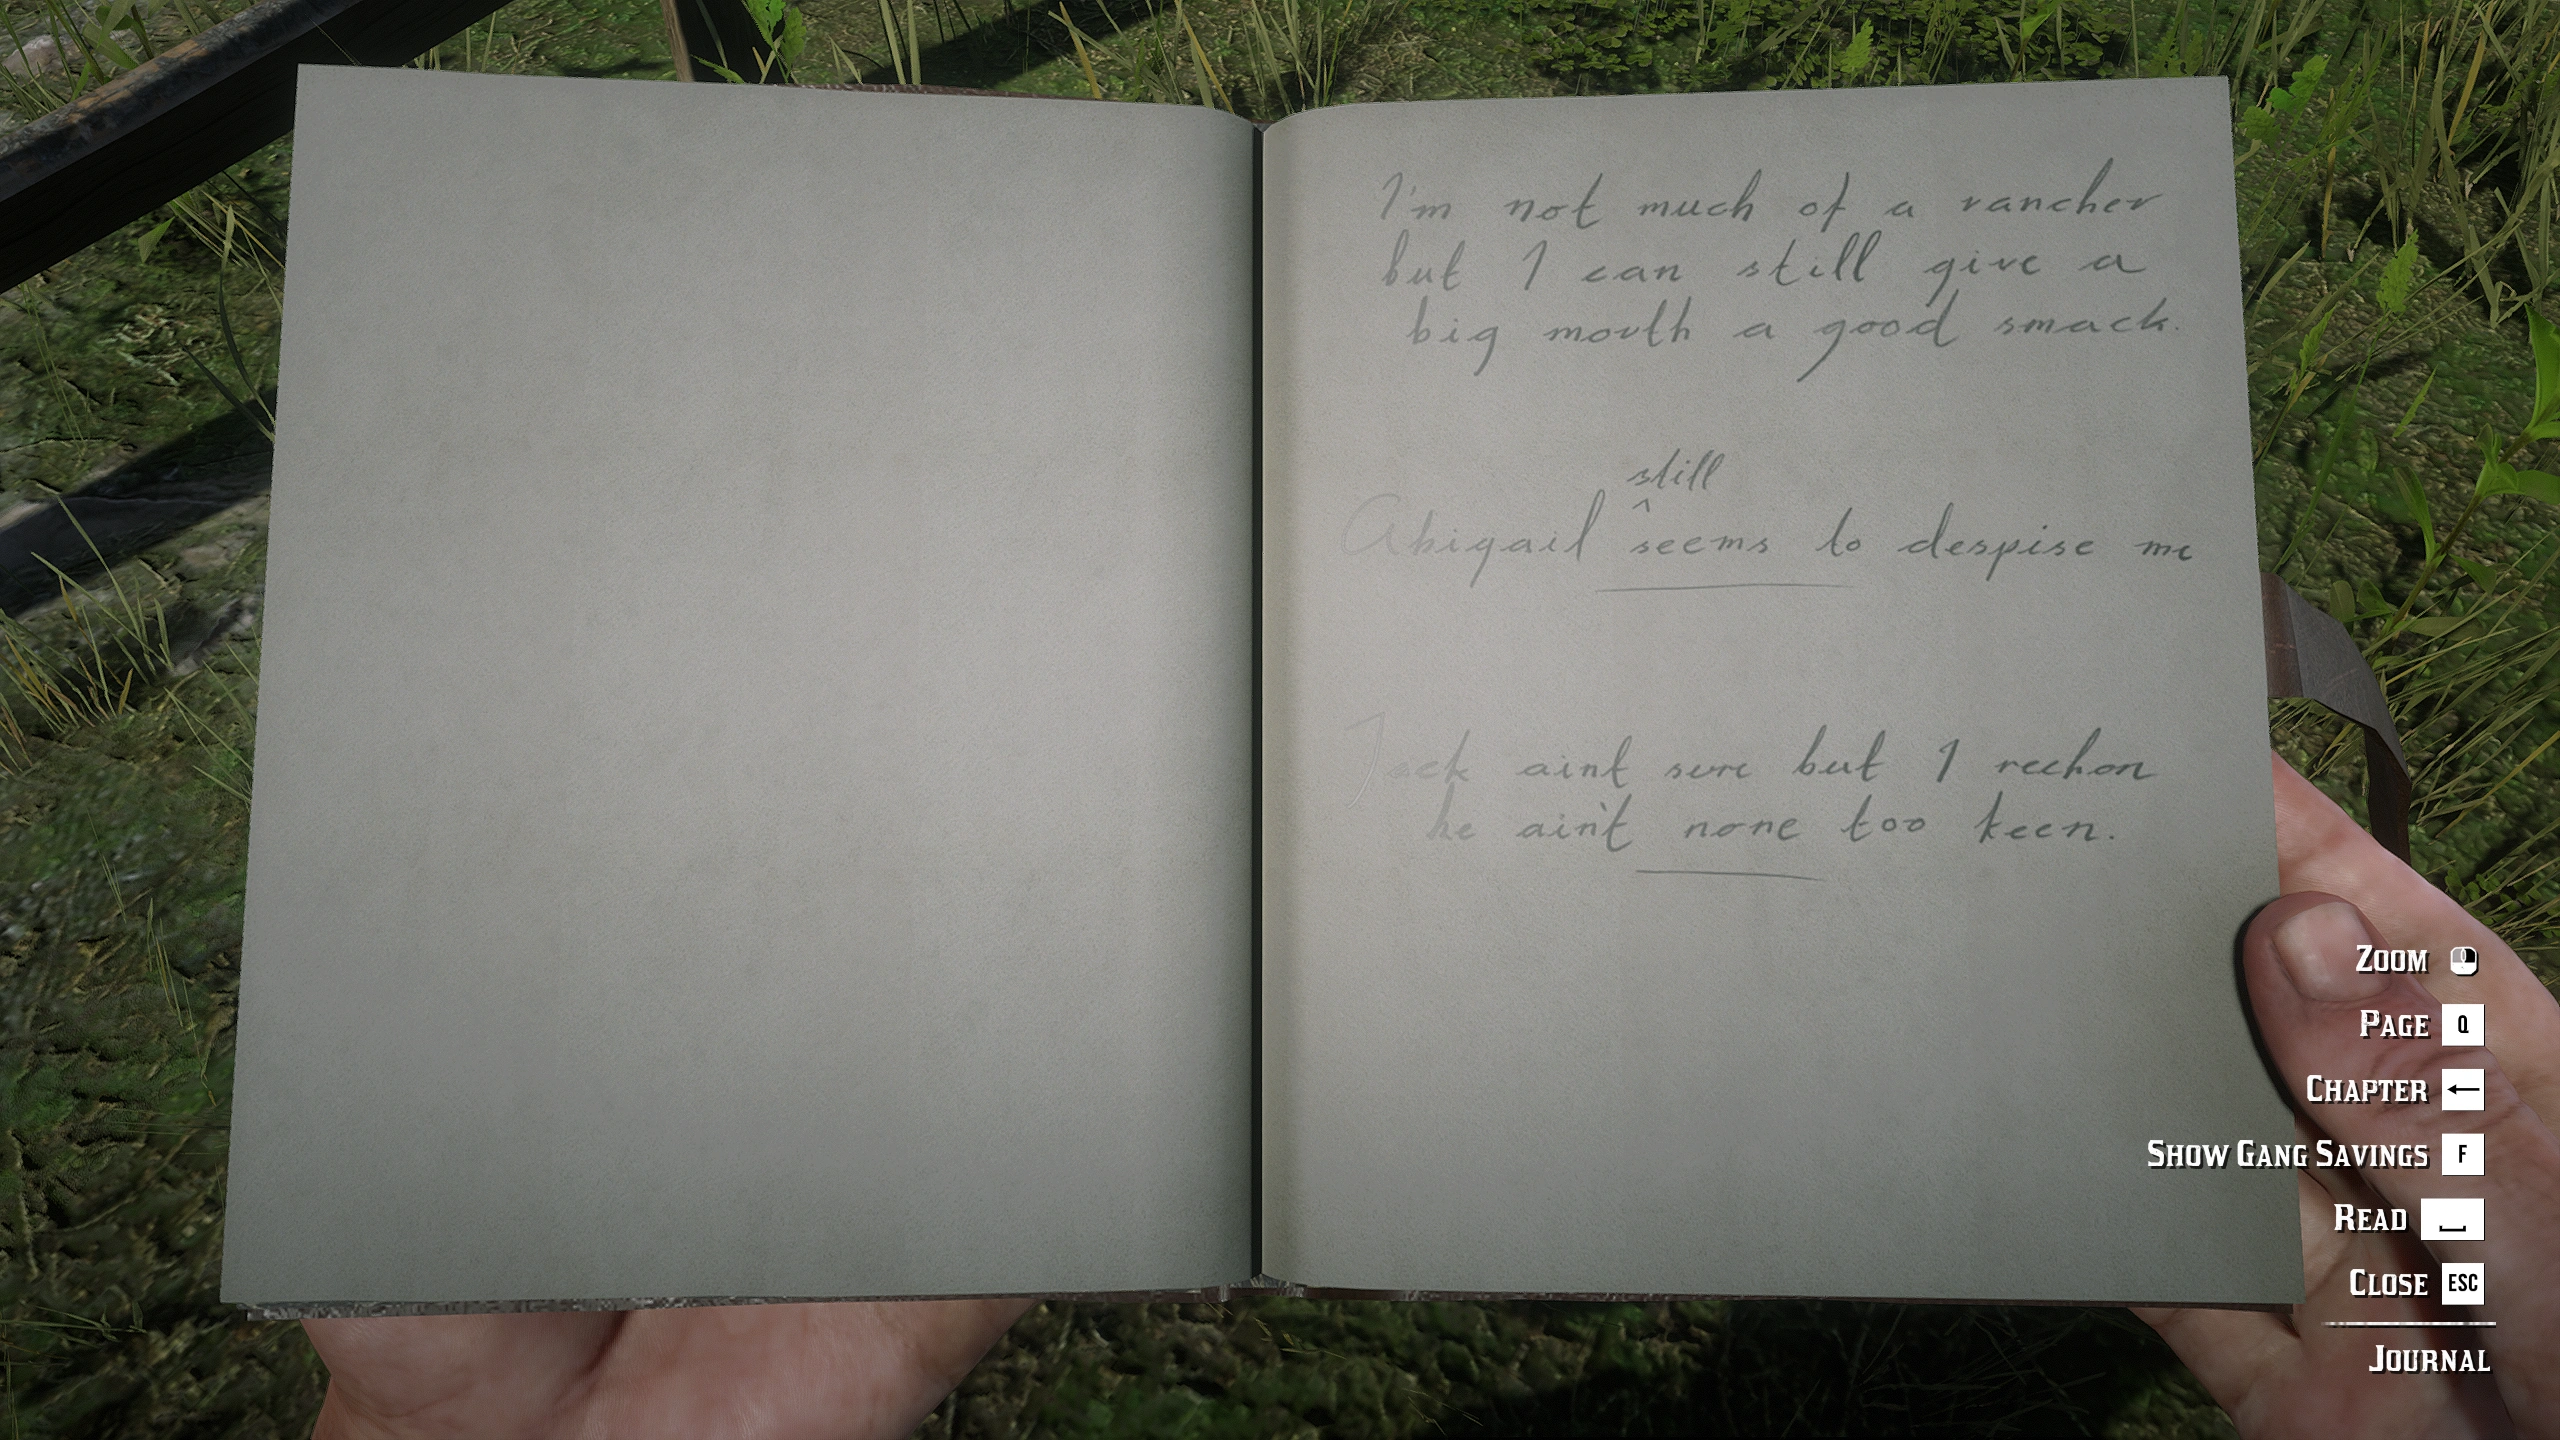 I'm not much of a rancher
but I can still give a
big mouth a good smack.
still
^
Abigail seems to despise me
Jack aint sure but I reckon
he ain't none too keen.
ZOOM
PAGE Q
CHAPTER ←
SHOW GANG SAVINGS F
READ
CLOSE ESC
JOURNAL